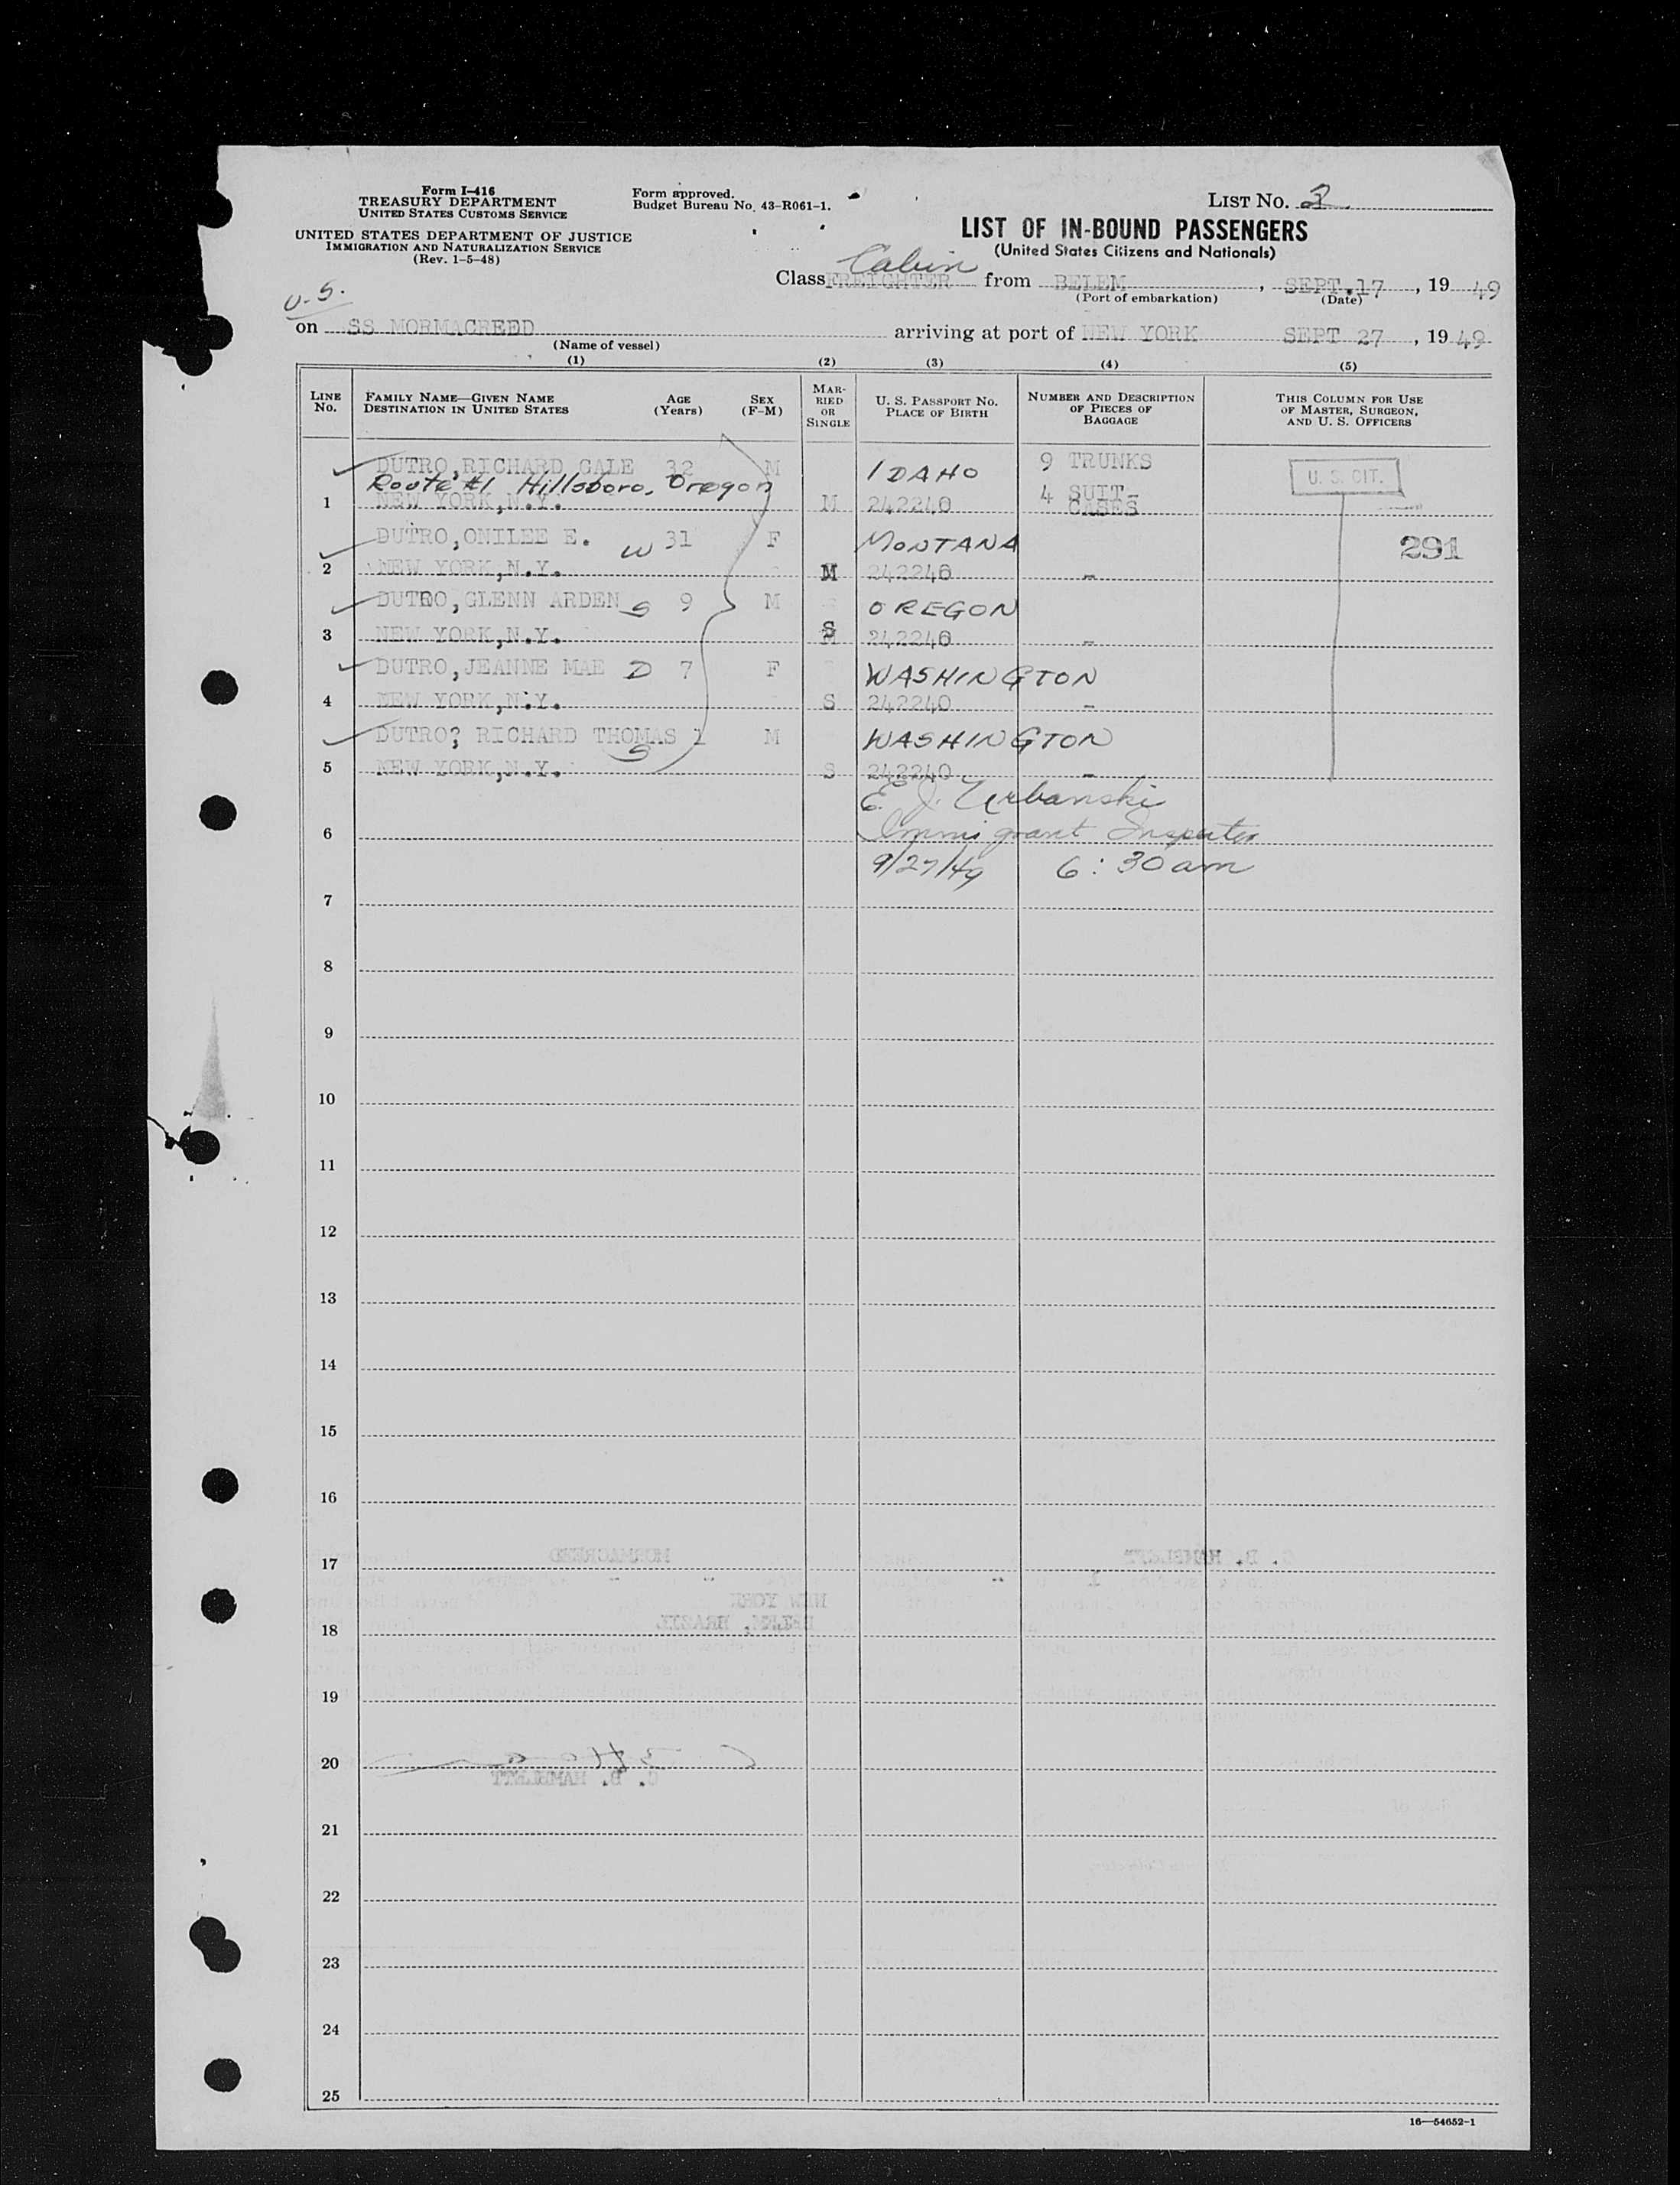 Form I-416
TREASURY DEPARTMENT
UNITED STATES CUSTOMS SERVICE
UNITED STATES DEPARTMENT OF JUSTICE
IMMIGRATION AND NATURALIZATION SERVICE
(Rev. 1-5-48)
Form approved.
Budget Bureau No. 43-R061-1.
LIST No.
LIST OF IN-BOUND PASSENGERS
(United States Citizens and Nationals)
Cabin
Class FREIGHTER from BELEM, SEPT.17, 19 49
(Port of embarkation) (Date)
U.S.
on SS MORMACREED arriving at port of NEW YORK SEPT 27, 19 49
(Name of vessel)
(1) (2) (3) (4) (5)
LINE No. FAMILY NAME—GIVEN NAME DESTINATION IN UNITED STATES AGE (Years) SEX (F-M) MARRIED OR SINGLE U. S. PASSPORT No. PLACE OF BIRTH NUMBER AND DESCRIPTION OF PIECES OF BAGGAGE THIS COLUMN FOR USE OF MASTER, SURGEON, AND U. S. OFFICERS
DUTRO,RICHARD CALE 32 M IDAHO 9 TRUNKS U. S. CIT.
Route #1 Hillsboro, Oregon
1 NEW YORK,N.Y. M 242240 4 SUIT-CASES
DUTRO,ONILEE E. W 31 F MONTANA 291
2 NEW YORK,N.Y. M 242240 -
DUTRO,GLENN ARDEN S 9 M OREGON
3 NEW YORK,N.Y. S 242240 -
DUTRO,JEANNE MAE D 7 F WASHINGTON
4 NEW YORK,N.Y. S 242240 -
DUTRO? RICHARD THOMAS 1 M WASHINGTON
S
5 NEW YORK,N.Y. S 242240 -
E. J. Urbanski
6 Immigrant Inspector
9/27/49 6:30am
7
8
9
10
11
12
13
14
15
16
17 MORMACREED C. B. HAMBLETT
NEW YORK
18 BELEM, BRAZIL
19
20
C. B. HAMBLETT
21
22
23
24
25
16—54652-1